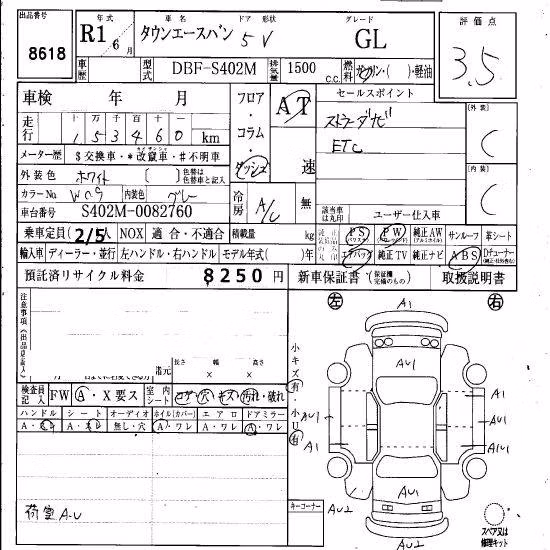 出品番号 年式 車名 ドア 形状 グレード 評価点
8618 R1 6月 タウンエースバン 5 V GL 3.5
車歴 型式 DBF-S402M 排気量 1500 c.c. 燃料 ガソリン・( )・軽油
車検 年 月 フロア・コラム・ダッシュ AT 速 セールスポイント
走行 十万千百十一 153460 km ストラーダナビ 【外装】 C
メーター歴 $交換車・*改竄車・#不明車 ETC
外装色 ホワイト( ) 色替は色替車と記入 【内装】 C
カラーNo. W09 内装色 グレー 冷房 A/C 無
車台番号 S402M-0082760 ユーザー仕入車
乗車定員 (2/5)人 NOX 適合・不適合 積載量 kg PS PW 純正AW サンルーフ 革シート
輸入車 ディーラー・並行 左ハンドル・右ハンドル モデル年式( )年 エアバッグ 純正TV 純正ナビ ABS
預託済リサイクル料金 8250円 新車保証書 取扱説明書
注意事項(出品店記入) 左 右
諸元 長さ 幅 高さ × ×
小キズ有・小U有
検査員記入 FW A・X要ス 室内シート コゲ・穴・キズ・汚れ・破れ
ハンドル シート オーディオ ホイル(カバー) エアロ ドアミラー
無し・穴 A・ワレ A・ワレ A・ワレ
荷室 A-U
キーコーナー
A1
AU1
AU1 AU1
A1 AU1
AU1
AU2 AU2
スペア又は修理キット